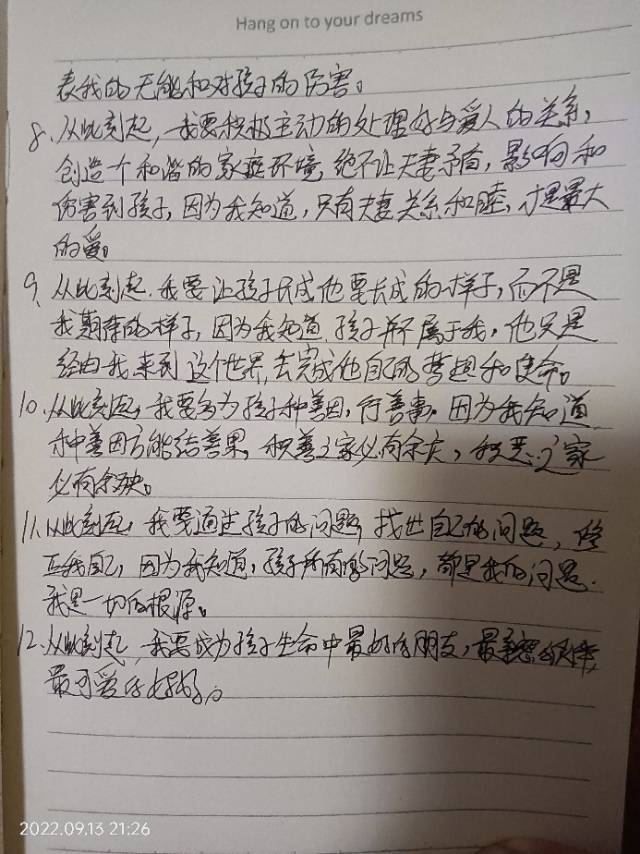 Hang on to your dreams
表我的无能和对孩子的伤害。
8、从此刻起,我要积极主动的处理好与爱人的关系,
创造一个和谐的家庭环境,绝不让夫妻矛盾,影响和
伤害到孩子,因为我知道,只有夫妻关系和睦,才是最大
的爱。
9、从此刻起,我要让孩子长成他要长成的样子,而不是
我期待的样子,因为我知道,孩子并不属于我,他只是
经由我来到这个世界,去完成他自己的梦想和使命。
10、从此刻起,我要多为孩子种善因,行善事,因为我知道
种善因方能结善果,积善之家必有余庆,积恶之家
必有余殃。
11、从此刻起,我要通过孩子的问题,找出自己的问题,修
正我自己,因为我知道,孩子所有的问题,都是我的问题.
我是一切的根源。
12、从此刻起,我要成为孩子生命中最好的朋友,最
最可爱的妈妈。
2022.09.13 21:26